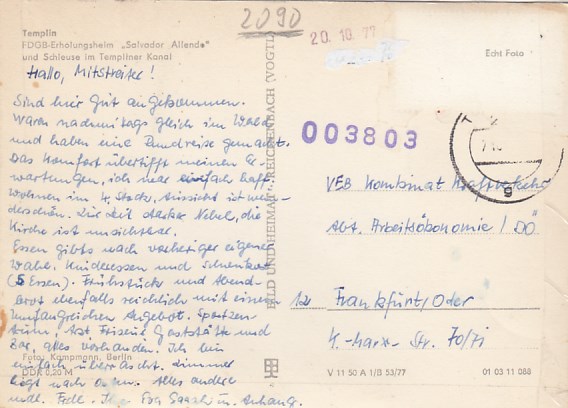 2090
20.10.77
Templin
FDGB-Erholungsheim „Salvador Allende"
und Schleuse im Templiner Kanal
Echt Foto
Hallo, Mitstreiter!
Sind hier gut angekommen.
Waren nachmittags gleich im Wald
und haben eine Rundreise gemacht.
Das Komfort übertrifft meinen Er-
wartungen, ich war einfach baff.
Wohnen im 4. Stock, Aussicht ist wun-
derschön. Zur Zeit starker Nebel, die
Kirche ist unsichtbar.
Essen gibts nach vorheriger eigener
Wahl. Kinderessen und Schonkost
(5 Essen). Frühstück und Abend-
brot ebenfalls reichlich mit einem
umfangreichen Angebot. Sportzen-
trum, Arzt Friseur Gaststätte und
Bar, alles vorhanden. Ich bin
einfach überrascht. Zimmer
liegt nach Osten. Alles andere
mdl. Frdl. Eva
003803
VEB Kombinat Kraftverkehr
Abt. Arbeitsökonomie / DÖ
12 Frankfurt/Oder
K.-Marx-Str. 70/71
BILD UND HEIMAT REICHENBACH (VOGTL)
Foto: Kampmann, Berlin
DDR 0,20 M
V 11 50 A 1/B 53/77
01 03 11 088